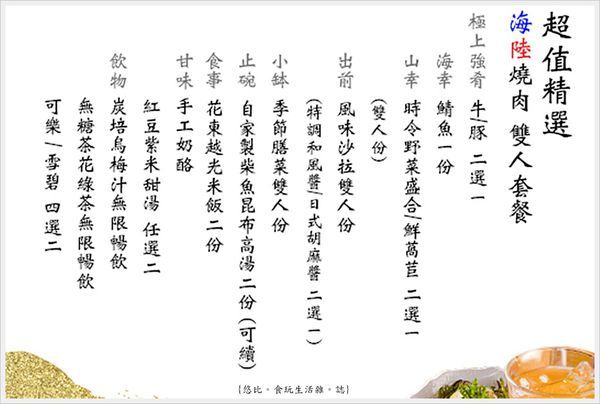 超值精選
海陸燒肉 雙人套餐
極上強肴 牛/豚 二選一
海幸 鯖魚一份
山幸 時令野菜盛合/鮮萵苣 二選一
(雙人份)
出前 風味沙拉雙人份
(特調和風醬/日式胡麻醬 二選一)
小缽 季節膳菜雙人份
止碗 自家製柴魚昆布高湯二份(可續)
食事 花東越光米飯二份
甘味 手工奶酪
紅豆紫米甜湯 任選二
飲物 炭培烏梅汁無限暢飲
無糖茶花綠茶無限暢飲
可樂/雪碧 四選二
{悠比。食玩生活雜。誌}